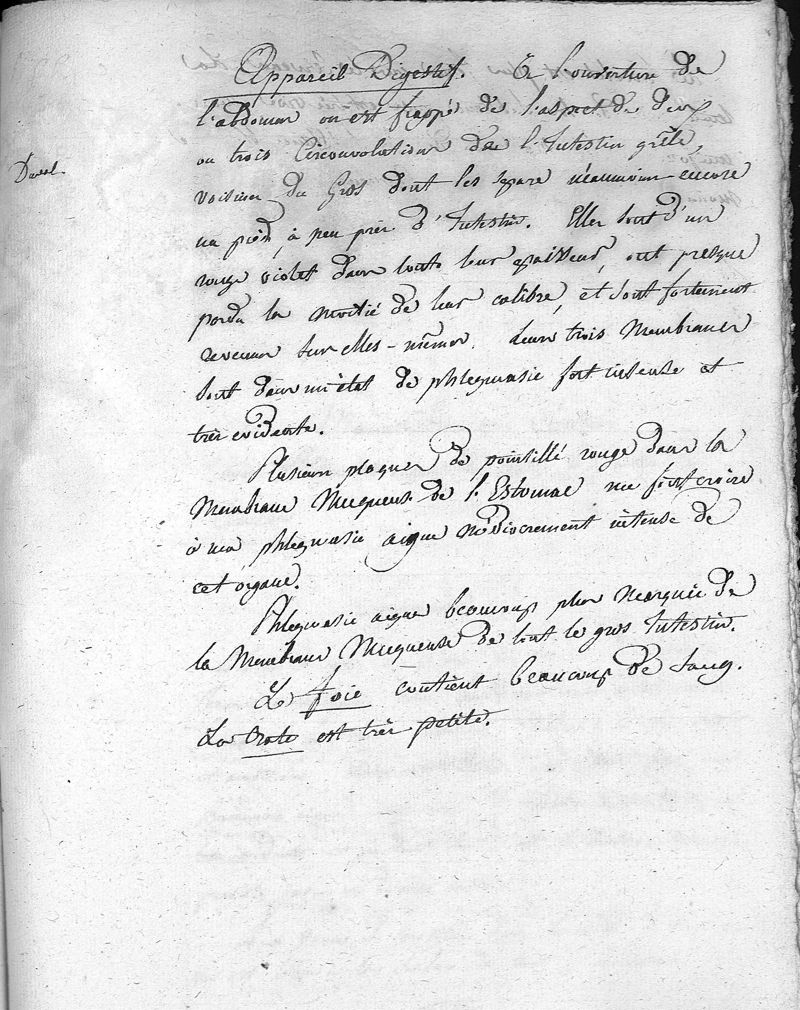 Appareil Digestif. À l'ouverture de
l'abdomen on est frappé de l'aspect de deux
ou trois Circonvolutions de l'Intestin grêle,
Duval.
voisines du Gros dont les sépare néanmoins encore
un pied, à peu près d'Intestin. Elles sont d'un
rouge violet dans toute leur épaisseur, ont presque
perdu la moitié de leur calibre, et sont fortement
revenues sur elles-mêmes. Leurs trois Membranes
sont dans un état de phlegmasie fort intense et
très évidente.
Plusieurs plaques de pointillé rouge dans la
Membrane Muqueuse de l'Estomac me font croire
à une phlegmasie aigue médiocrement intense de
cet organe.
Phlegmasie aigue beaucoup plus marquée de
la Membrane Muqueuse de tout le gros Intestin.
Le foie contient beaucoup de sang.
La Rate est très petite.